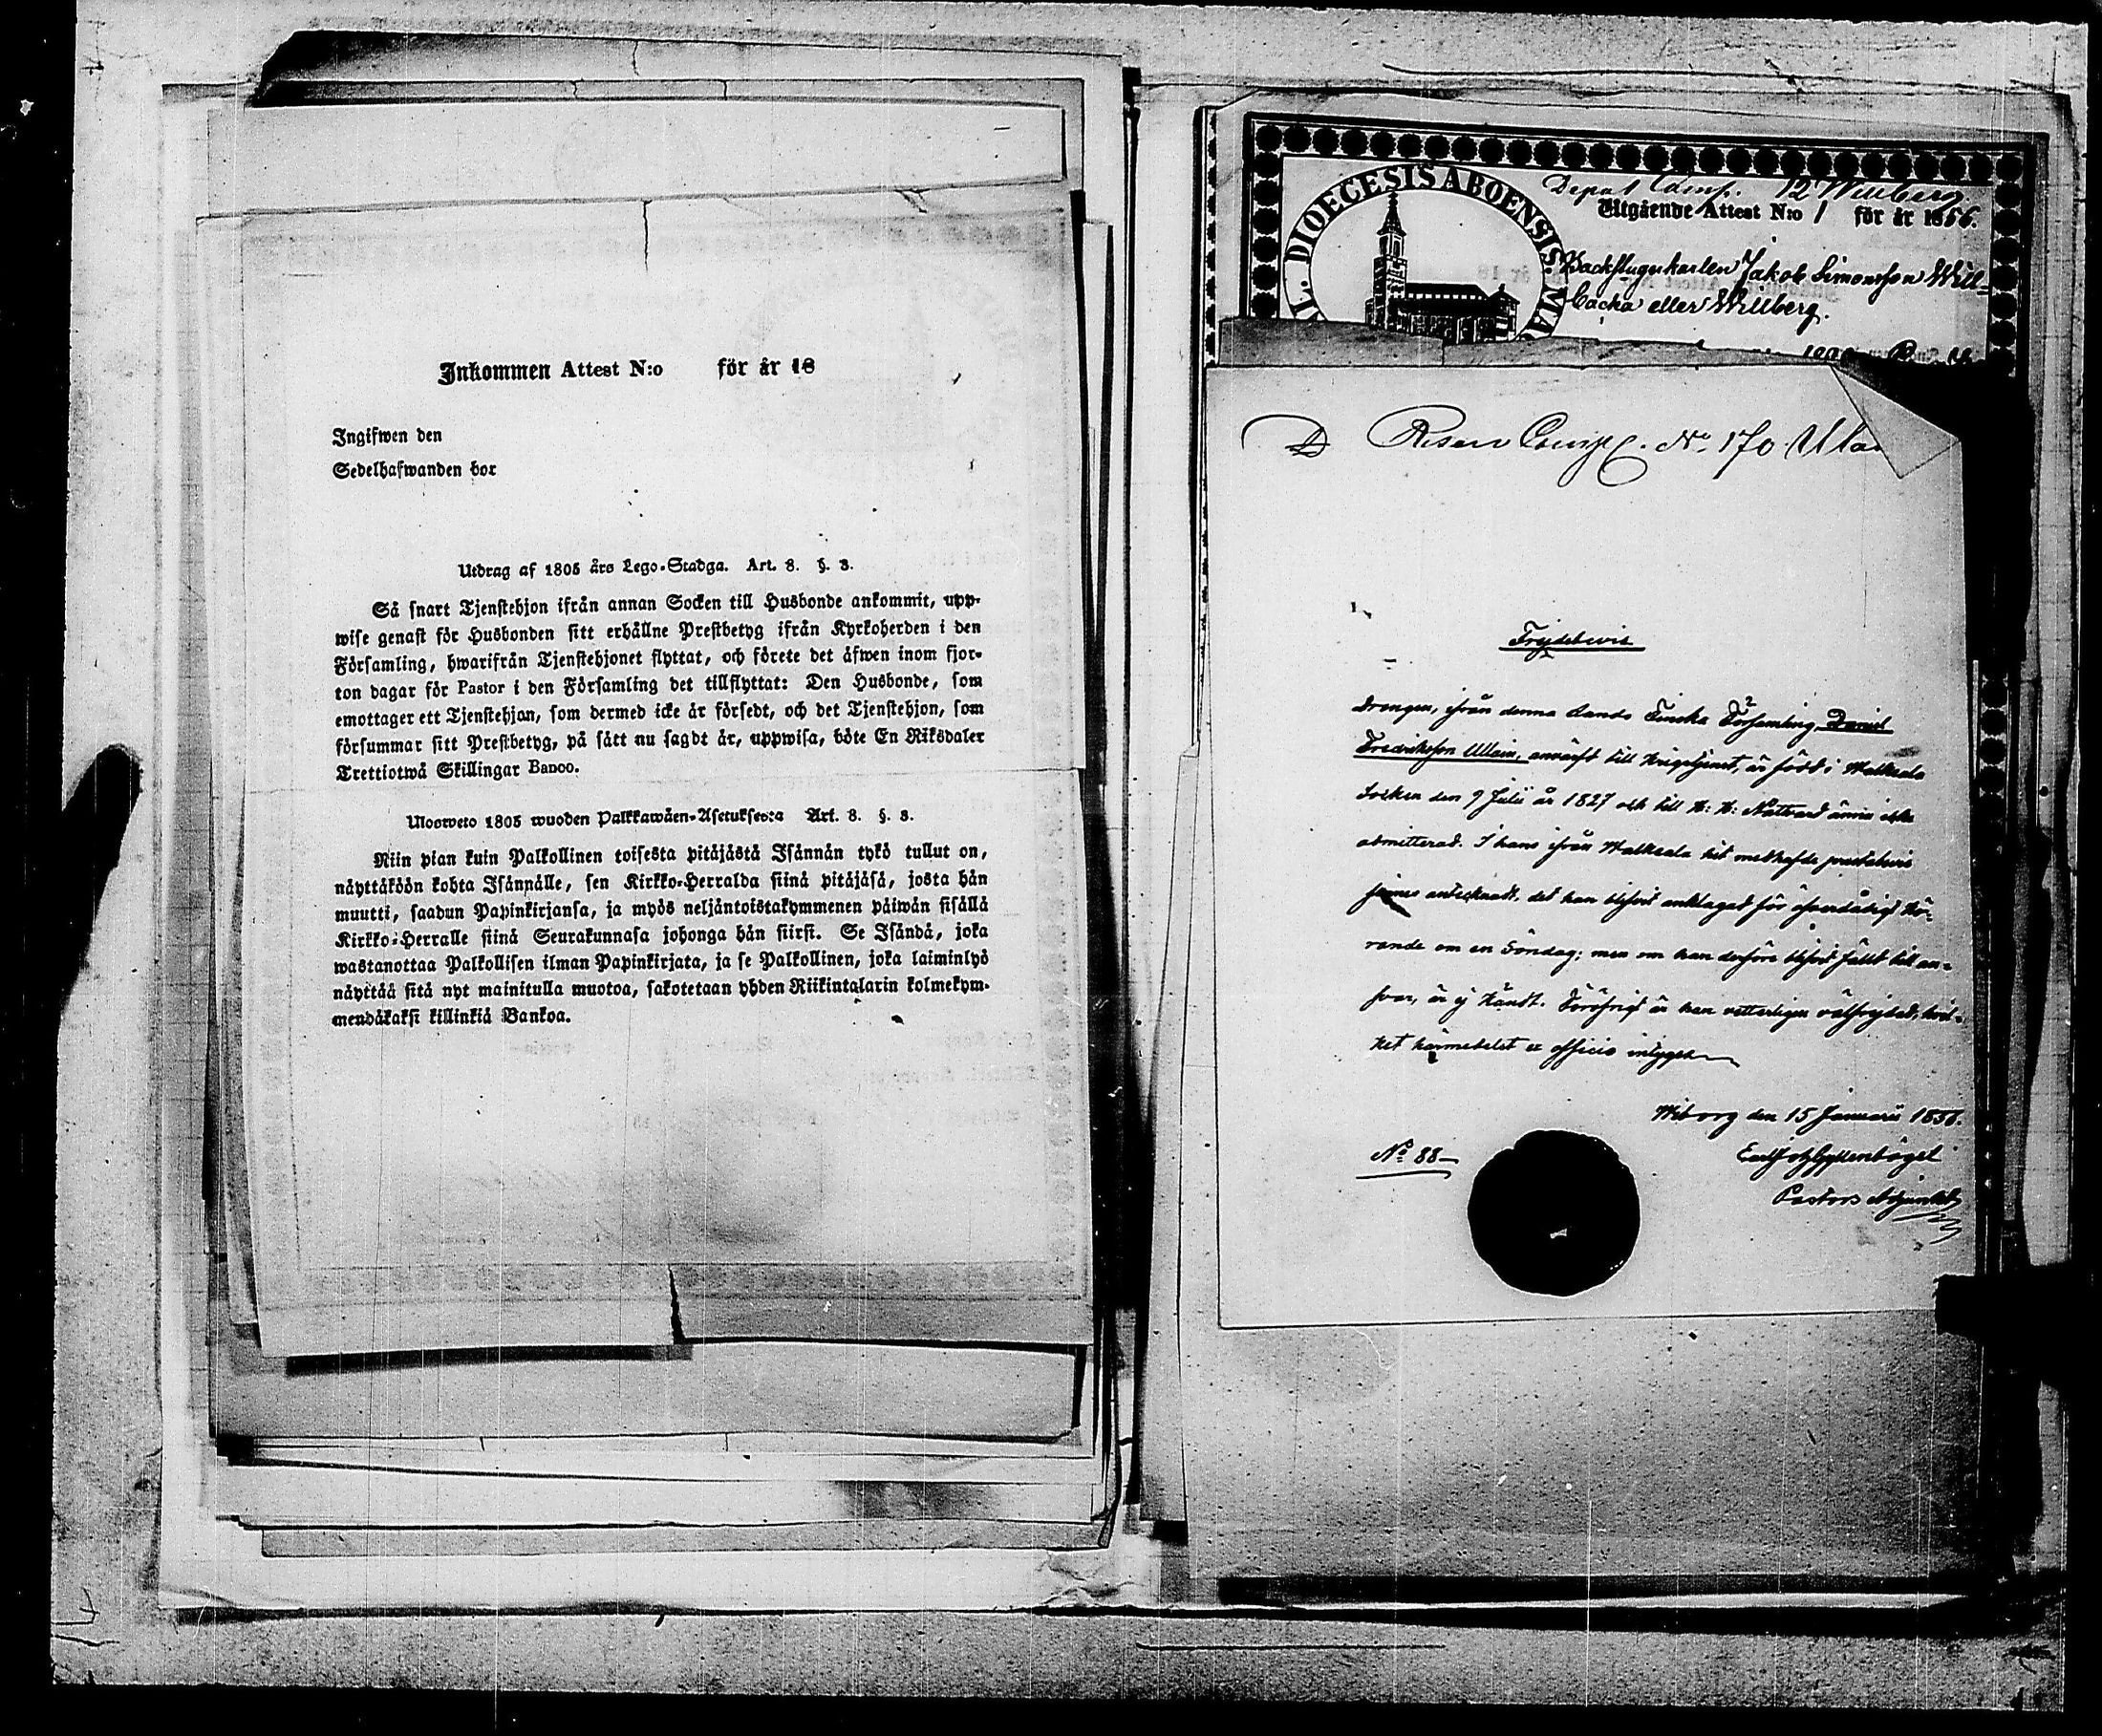 Inkommen Attest N:o för år 18
Ingifwen den
Sedelhafwanden bor
Utdrag af 1805 års Lego-Stadga. Art. 8. §. 3.
Så snart Tjenstehjon ifrån annan Socken till Husbonde ankommit, upp-
wise genast för Husbonden sitt erhållne Prestbetyg ifrån Kyrkoherden i den
Församling, hwarifrån Tjenstehjonet flyttat, och förete det äfwen inom fjor-
ton dagar för Pastor i den Församling det tillflyttat: Den Husbonde, som
emottager ett Tjenstehjon, som dermed icke är försedt, och det Tjenstehjon, som
försummar sitt Prestbetyg, på sätt nu sagdt är, uppwisa, böte En Riksdaler
Trettiotwå Skillingar Banco.
Ulosweto 1805 wuoden Palkkawäen-Asetuksesta Art. 8. §. 3.
Niin pian kuin Palkollinen toisesta pitäjästä Isännän tykö tullut on,
näyttäköön kohta Isännälle, sen Kirkko-Herralda siinä pitäjäsä, josta hän
muutti, saadun Papinkirjansa, ja myös neljäntoistakymmenen päiwän sisällä
Kirkko-Herralle siinä Seurakunnasa johonga hän siirsi. Se Isändä, joka
wastanottaa Palkollisen ilman Papinkirjata, ja se Palkollinen, joka laiminlyö
näyttää sitä nyt mainitulla muotoa, sakotetaan yhden Riikintalarin kolmekym-
mendäkaksi killinkiä Bankoa.
DIOECESIS ABOENSIS. MA
Depot Comp. 12 Willberg
Utgående Attest N:o 1 för år 1856.
Backstugukarlen Jakob Simonsson Will-
backa eller Willberg.
D Reserv Comp. No 170 Ulla
Frejdebevis
Drengen, ifrån denna Lands Finska Församling, Daniel
Fredriksson Ullain, antagit till Krigstjenst, är född i Walkeala
Socken den 9 Julii år 1827 och till H: H: Nattvard ännu icke
admitterad. I hans ifrån Walkeala hit medhafde prestabevis
finnes antecknadt, det han blifvit anklagad för öfverdådigt kö-
rande om en Söndag; men om han derföre blifvit fälld till an-
svar, är ej kändt. Föröfrigt är han vetterligen välfrejdad, hvil-
ket härmedelst ex officio intygas
Wiborg den 15 Januarii 1856.
No 88
Gyllenbögel
Pastors Adjunkt